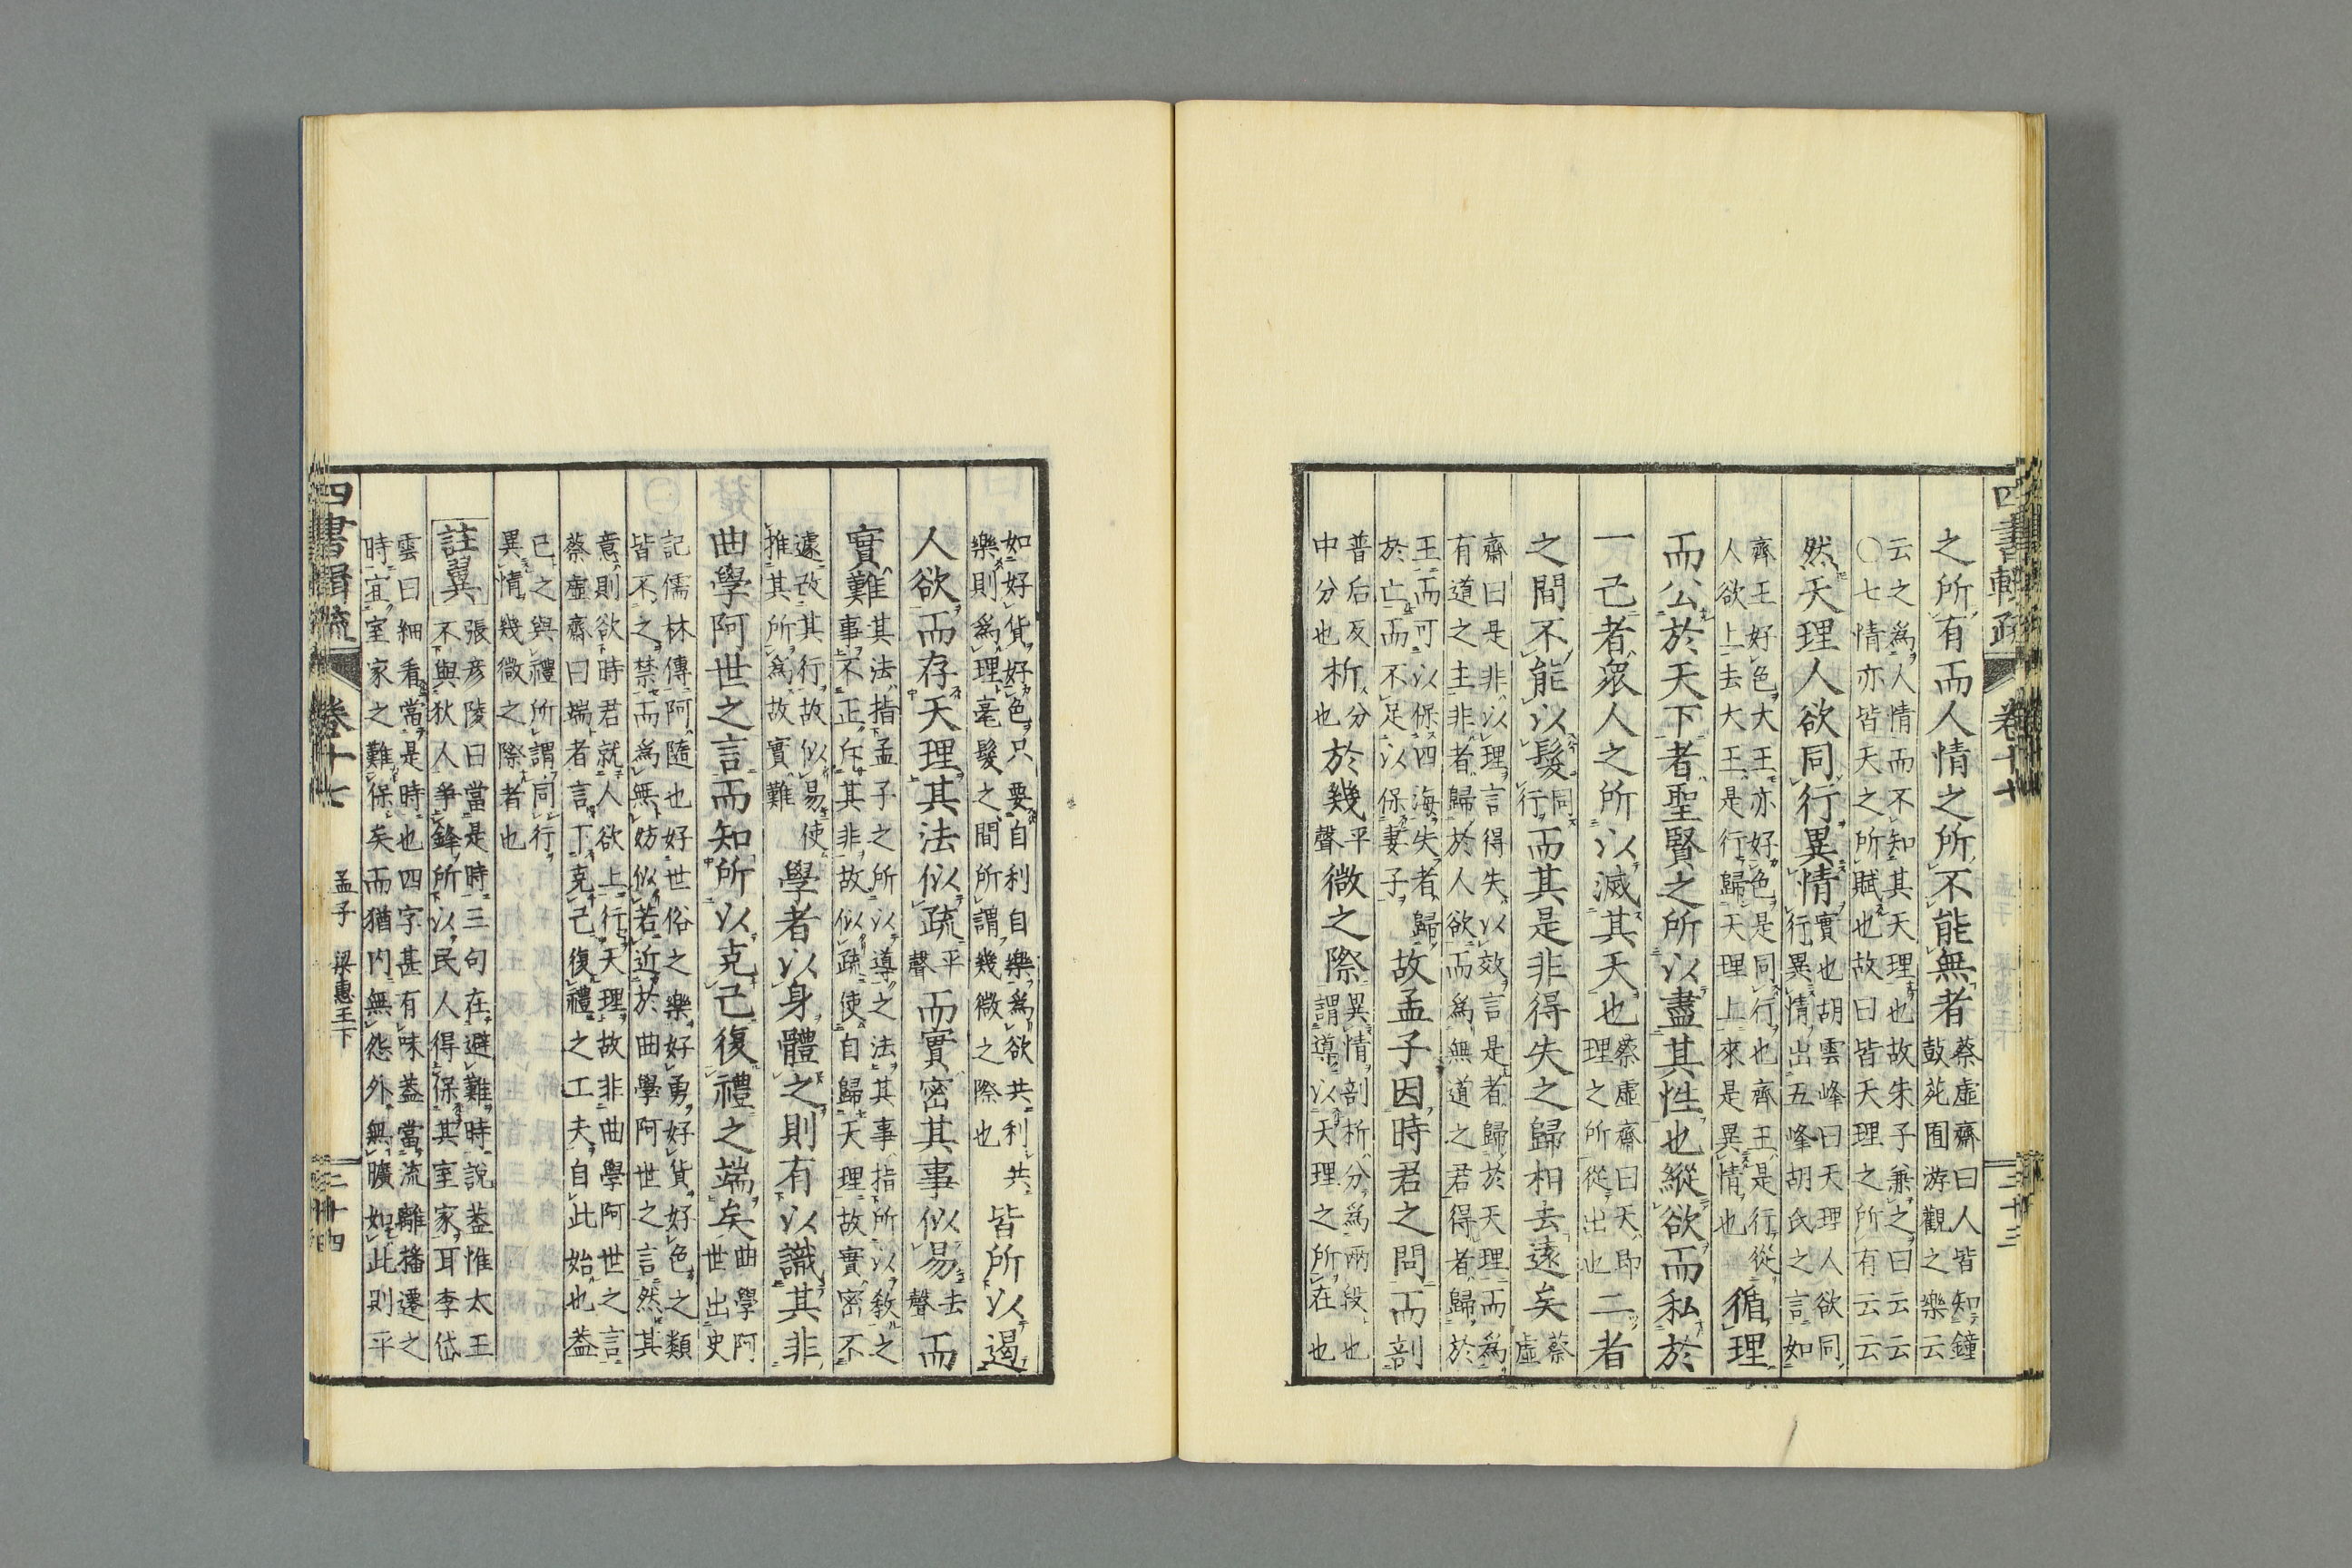 四書輯疏 卷十七 三十三
之所有而人情之所不能無者蔡虛齋曰人皆知鐘
鼓苑囿游觀之樂云
云之爲人情而不知其天理也故朱子兼之曰云云
〇七情亦皆天之所賦也故曰皆天理之所有云云
然天理人欲同行異情實也胡雲峰曰天理人欲同
行異情出五峰胡氏之言如
齊王好色大王亦好色是同行也齊王是行從
人欲上去大王是行歸天理上來是異情也循理
而公於天下者聖賢之所以盡其性也縱欲而私於
一己者衆人之所以滅其天也蔡虛齋曰天即
理之所從出也二者
之間不能以髮同
行而其是非得失之歸相去遠矣蔡
虛
齋曰是非以理言得失以效言是者歸於天理而爲
有道之主非者歸於人欲而爲無道之君得者歸於
王而可以保四海失者歸
於亡而不足以保妻子故孟子因時君之問而剖
普后反
中分也析分
也於幾平
聲微之際異情剖析分爲兩段也
謂導以天理之所在也
如好貨好色只要自利自樂爲欲共利共
樂則爲理毫髮之間所謂幾微之際也皆所以遏
人欲而存天理其法似疏平
聲而實密其事似易去
聲而
實難其法指孟子之所以導之法其事指所以教之
事不正斥其非故似疏使自歸天理故實密不
遽改其行故似易使
推其所爲故實難學者以身體之則有以識其非
曲學阿世之言而知所以克己復禮之端矣曲學阿
世出史
記儒林傳阿隨也好世俗之樂好勇好貨好色之類
皆不之禁而爲無妨似若近於曲學阿世之言然其
意則欲時君就人欲上行天理故非曲學阿世之言
蔡虛齋曰端者言下克己復禮之工夫自此始也蓋
己之與禮所謂同行
異情幾微之際者也
註翼張彦陵曰當是時三句在避難時說蓋惟太王
不與狄人爭鋒所以民人得保其室家耳李岱
雲曰細看當是時也四字甚有味蓋當流離播遷之
時宜室家之難保矣而猶內無怨外無曠如此則平
四書輯疏 卷十七 孟子 梁惠王下 三十四